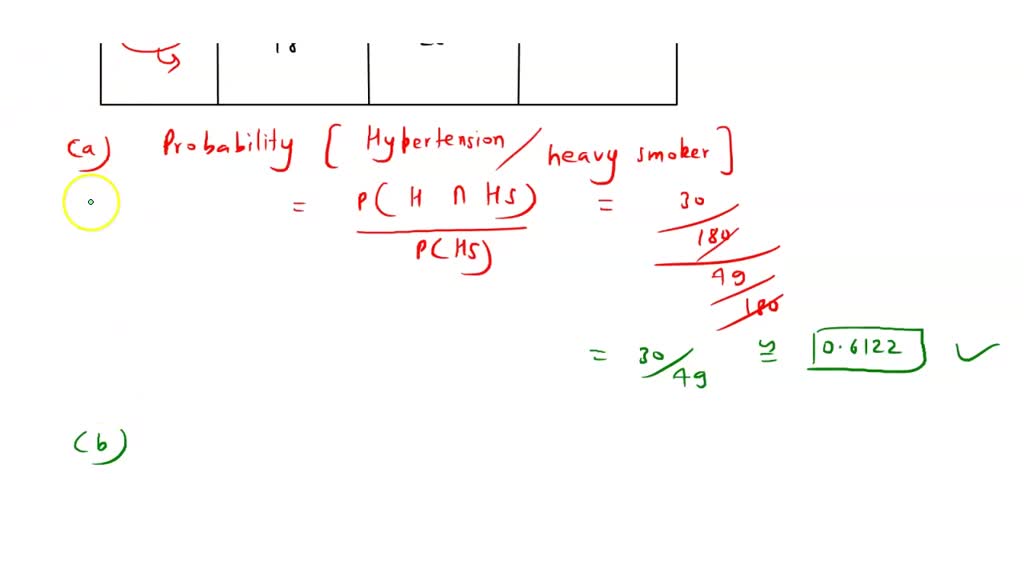 18
(a) Probability [ Hypertension / heavy smoker ]
= P( H ∩ HS) / P(HS) = 30/180 / 49/180
= 30/49 ≅ 0.6122 ✓
(b)